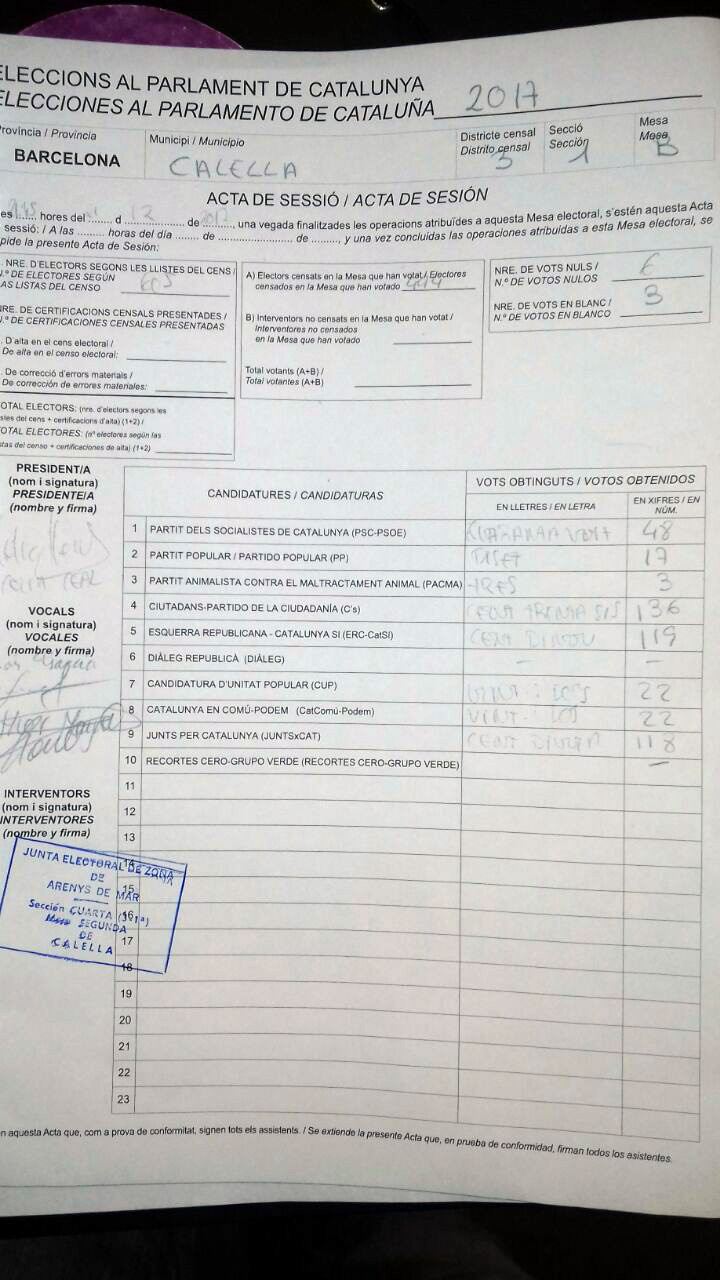 ELECCIONS AL PARLAMENT DE CATALUNYA
ELECCIONES AL PARLAMENTO DE CATALUÑA 2017
Província / Provincia
BARCELONA
Municipi / Municipio
CALELLA
Districte censal
Distrito censal
3
Secció
Sección
1
Mesa
Mesa
B
ACTA DE SESSIÓ / ACTA DE SESIÓN
es ...... hores del ...... d 12 de 2017, una vegada finalitzades les operacions atribuïdes a aquesta Mesa electoral, s'estén aquesta Acta
sessió: / A las ........ horas del día ....... de .................... de ........, y una vez concluidas las operaciones atribuidas a esta Mesa electoral, se
pide la presente Acta de Sesión:
NRE. D'ELECTORS SEGONS LES LLISTES DEL CENS /
N.º DE ELECTORES SEGÚN
LAS LISTAS DEL CENSO
NRE. DE CERTIFICACIONS CENSALS PRESENTADES /
N.º DE CERTIFICACIONES CENSALES PRESENTADAS
. D'alta en el cens electoral /
De alta en el censo electoral:
. De correcció d'errors materials /
De corrección de errores materiales:
TOTAL ELECTORS: (nre. d'electors segons les
listes del cens + certificacions d'alta) (1+2) /
TOTAL ELECTORES: (nº electores según las
listas del censo + certificaciones de alta) (1+2)
A) Electors censats en la Mesa que han votat / Electores
censados en la Mesa que han votado
B) Interventors no censats en la Mesa que han votat /
Interventores no censados
en la Mesa que han votado
Total votants (A+B) /
Total votantes (A+B)
NRE. DE VOTS NULS /
N.º DE VOTOS NULOS 6
NRE. DE VOTS EN BLANC /
N.º DE VOTOS EN BLANCO 3
PRESIDENT/A
(nom i signatura)
PRESIDENTE/A
(nombre y firma)
VOCALS
(nom i signatura)
VOCALES
(nombre y firma)
INTERVENTORS
(nom i signatura)
INTERVENTORES
(nombre y firma)
CANDIDATURES / CANDIDATURAS
VOTS OBTINGUTS / VOTOS OBTENIDOS
EN LLETRES / EN LETRA
EN XIFRES / EN NÚM.
1 PARTIT DELS SOCIALISTES DE CATALUNYA (PSC-PSOE) VUIT 48
2 PARTIT POPULAR / PARTIDO POPULAR (PP) DISET 17
3 PARTIT ANIMALISTA CONTRA EL MALTRACTAMENT ANIMAL (PACMA) TRES 3
4 CIUTADANS-PARTIDO DE LA CIUDADANÍA (C's) CENT TRENTA SIS 136
5 ESQUERRA REPUBLICANA - CATALUNYA SI (ERC-CatSI) CENT DINOU 119
6 DIÀLEG REPUBLICÀ (DIÀLEG) - -
7 CANDIDATURA D'UNITAT POPULAR (CUP) VINT-I DOS 22
8 CATALUNYA EN COMÚ-PODEM (CatComú-Podem) VINT-I DOS 22
9 JUNTS PER CATALUNYA (JUNTSxCAT) CENT 118
10 RECORTES CERO-GRUPO VERDE (RECORTES CERO-GRUPO VERDE) -
11
12
13
14
15
16
17
18
19
20
21
22
23
JUNTA ELECTORAL DE ZONA
DE
ARENYS DE MAR
Sección CUARTA (3ª1ª)
Mesa SEGUNDA
DE
CALELLA
n aquesta Acta que, com a prova de conformitat, signen tots els assistents. / Se extiende la presente Acta que, en prueba de conformidad, firman todos los asistentes.